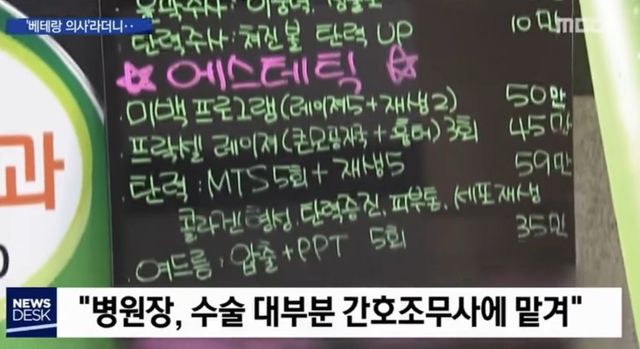 '베테랑 의사'라더니‥
MBC
탄력주사: 처진볼 탄력 UP 10만
☆에스테틱☆
미백 프로그램(레이저5+재생2) 50만
프락셀 레이저(큰모공자국+흉터)3회 45만
탄력: MTS 5회 + 재생 5 59만
콜라겐 형성, 탄력증진, 피부톤, 세포재생
여드름: 압출+PPT 5회 35만
과
NEWS DESK
"병원장, 수술 대부분 간호조무사에 맡겨"